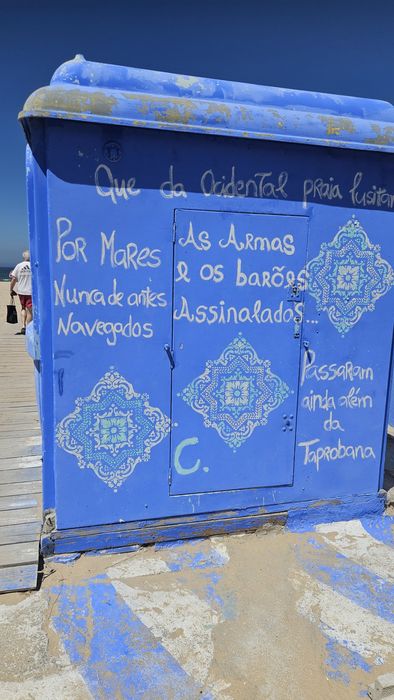 Que da Ocidental praia lusitan
As Armas
e os barões
Assinalados...
Por Mares
Nunca de antes
Navegados
Passaram
ainda além
da
Taprobana
C.